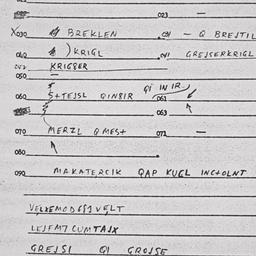 023 —
X030 BREKLEN 031 — Q BREJTIL
040 ) KRIGL 041 GREJSERKRIGL
042 KRIGBER
050 —
060 S+TEJSL QINBIR QI INIR 061
063
070 MERZL Q MES+ 071 —
080
090 MAKATERCIK QAP KUGL INC+OLNT
LEJFM7 CUMTAJX
GREJSI QI GROJSE